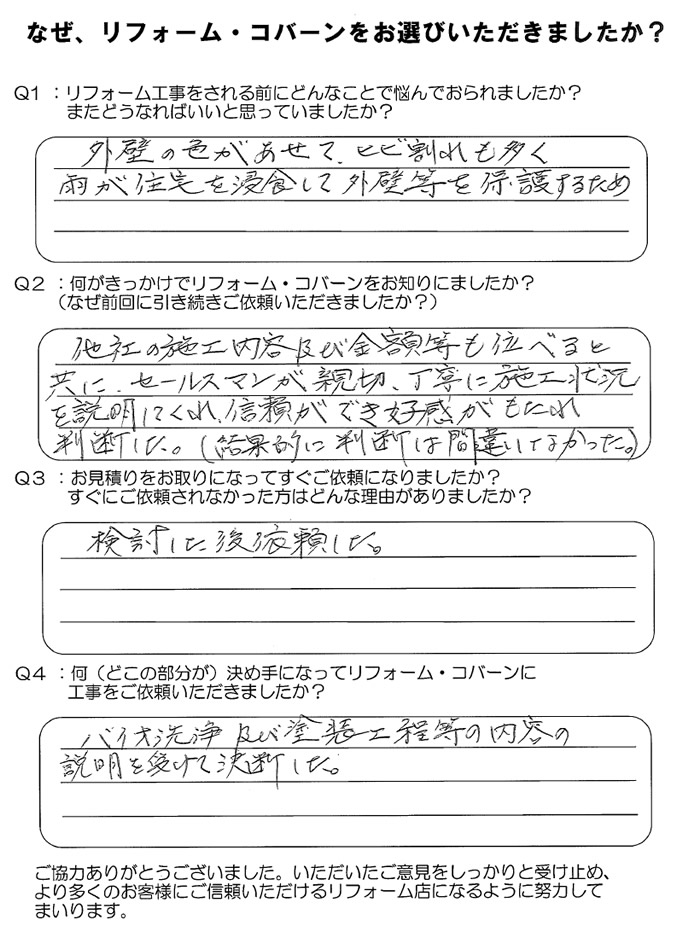 なぜ、リフォーム・コバーンをお選びいただきましたか？
Q1 ：リフォーム工事をされる前にどんなことで悩んでおられましたか？
またどうなればいいと思っていましたか？
外壁の色があせて、ヒビ割れも多く
雨が住宅を浸食して外壁等を保護するため
Q2 ：何がきっかけでリフォーム・コバーンをお知りにましたか？
（なぜ前回に引き続きご依頼いただきましたか？）
他社の施工内容及び金額等も位べると
共に、セールスマンが親切、丁寧に施工状況
を説明してくれ、信頼ができ好感がもたれ
判断した。（結果的に判断は間違いてなかった。）
Q3 ：お見積りをお取りになってすぐご依頼になりましたか？
すぐにご依頼されなかった方はどんな理由がありましたか？
検討した後依頼した。
Q4 ：何（どこの部分が）決め手になってリフォーム・コバーンに
工事をご依頼いただきましたか？
バイオ洗浄及び塗装工程等の内容の
説明を受けて決断した。
ご協力ありがとうございました。いただいたご意見をしっかりと受け止め、
より多くのお客様にご信頼いただけるリフォーム店になるように努力して
まいります。